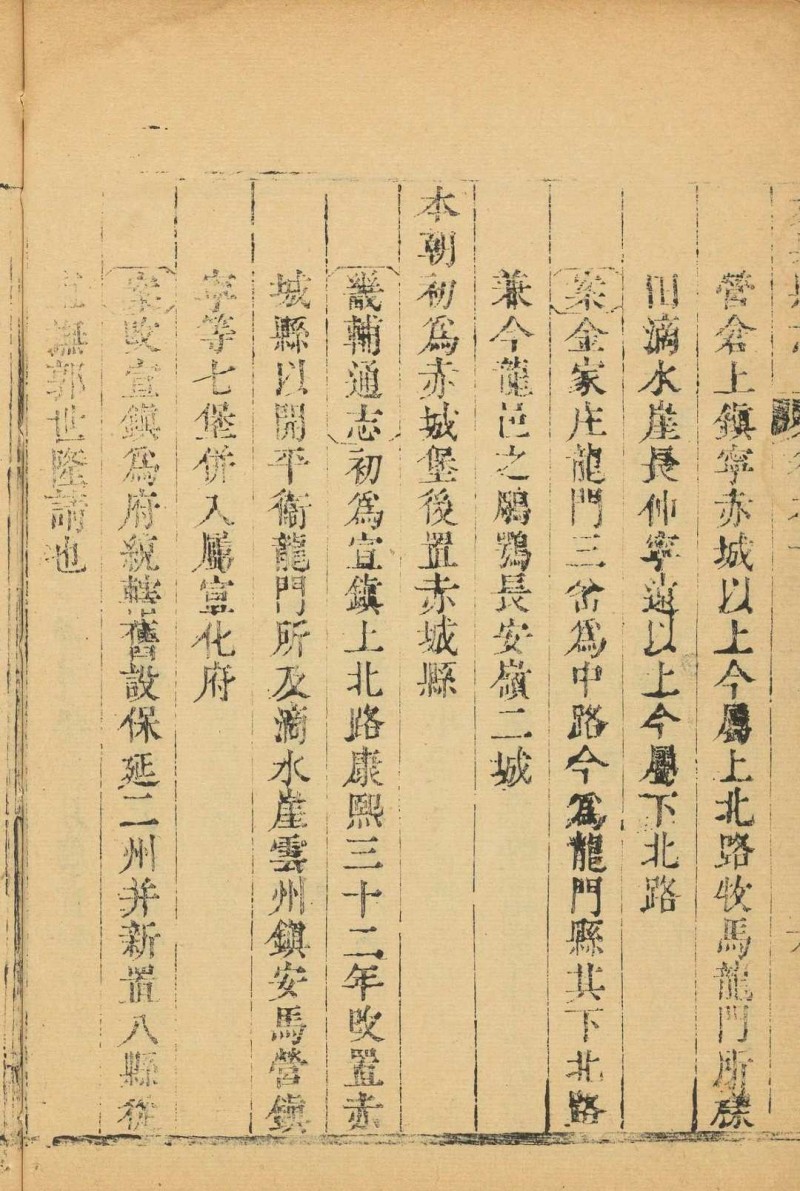 營倉上鎮寧赤城以上今屬上北路牧馬龍門所様
田滴水崖長伸寧遠以上今屬下北路
案金家庄龍門三岔爲中路今爲龍門縣其下北路
兼今龍邑之鵰鶚長安嶺二城
本朝初爲赤城堡後置赤城縣
畿輔通志初爲宣鎮上北路康熙三十二年改置赤
城縣以開平衛龍門所及滴水崖雲州鎮安馬營鎮
寧等七堡併入屬宣化府
案改宣鎮爲府統轄舊設保延二州并新置八縣從
撫郭世隆請也